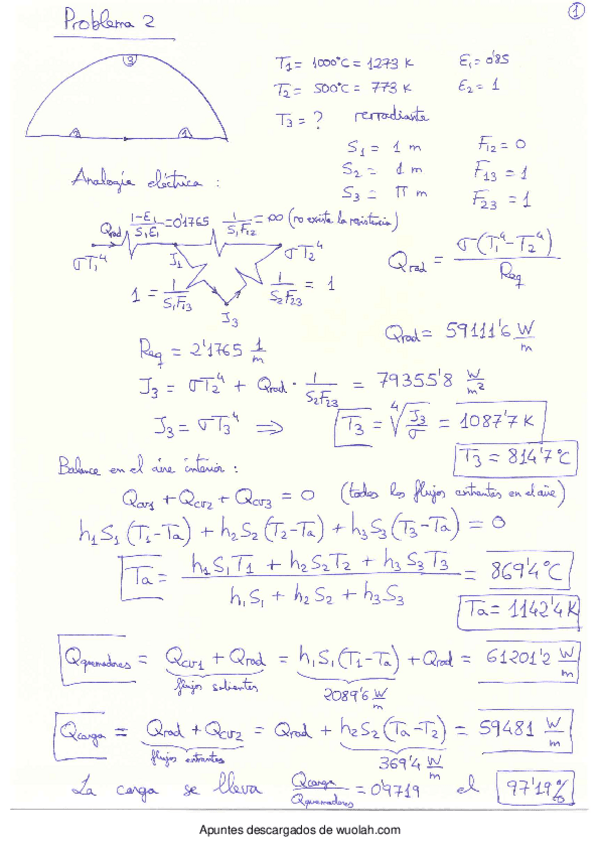 ①
Problema 2
T1 = 1000ºC = 1273 K    E1 = 0'85
T2 = 500ºC = 773 K    E2 = 1
T3 = ?    rerradiante
S1 = 1 m    F12 = 0
S2 = 1 m    F13 = 1
S3 = π m    F23 = 1
③
②    ①
Analogía eléctrica :
Qrad    (1-E1)/(S1E1) = 0'1765    1/(S1F12) = ∞ (no existe la resistencia)
σT1⁴    J1    σT2⁴
1 = 1/(S1F13)    1/(S2F23) = 1
J3
Qrad = σ(T1⁴-T2⁴)/Req
Req = 2'1765 1/m    Qrad = 59111'6 W/m
J3 = σT2⁴ + Qrad · 1/(S2F23) = 79355'8 W/m²
J3 = σT3⁴ ⇒ T3 = ⁴√(J3/σ) = 1087'7 K
T3 = 814'7ºC
Balance en el aire interior :
Qcv1 + Qcv2 + Qcv3 = 0 (todos los flujos entrantes en el aire)
h1S1(T1-Ta) + h2S2(T2-Ta) + h3S3(T3-Ta) = 0
Ta = (h1S1T1 + h2S2T2 + h3S3T3)/(h1S1 + h2S2 + h3S3) = 869'4ºC
Ta = 1142'4 K
Qquemadores = Qcv1 + Qrad = h1S1(T1-Ta) + Qrad = 61201'2 W/m
flujos salientes    2089'6 W/m
Qcarga = Qrad + Qcv2 = Qrad + h2S2(Ta-T2) = 59481 W/m
flujos entrantes    369'4 W/m
La carga se lleva Qcarga/Qquemadores = 0'9719 el 97'19%
Apuntes descargados de wuolah.com